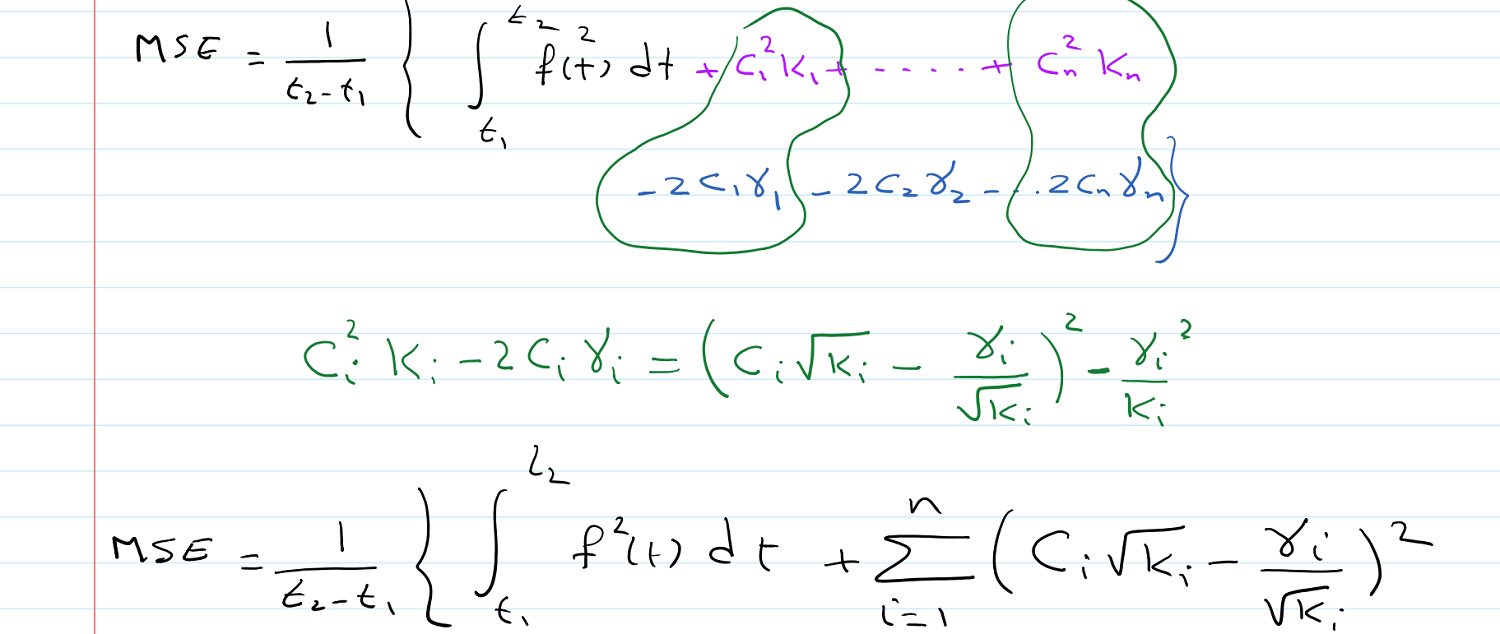 MSE = 1/(t₂-t₁) { ∫_{t₁}^{t₂} f²(t) dt + C₁²K₁ + - - - - + Cₙ²Kₙ
-2C₁γ₁ - 2C₂γ₂ - .. 2Cₙγₙ }
Cᵢ²Kᵢ - 2Cᵢγᵢ = (Cᵢ√Kᵢ - γᵢ/√Kᵢ)² - γᵢ²/Kᵢ
MSE = 1/(t₂-t₁) { ∫_{t₁}^{t₂} f²(t) dt + ∑_{i=1}^{n} (Cᵢ√Kᵢ - γᵢ/√Kᵢ)²